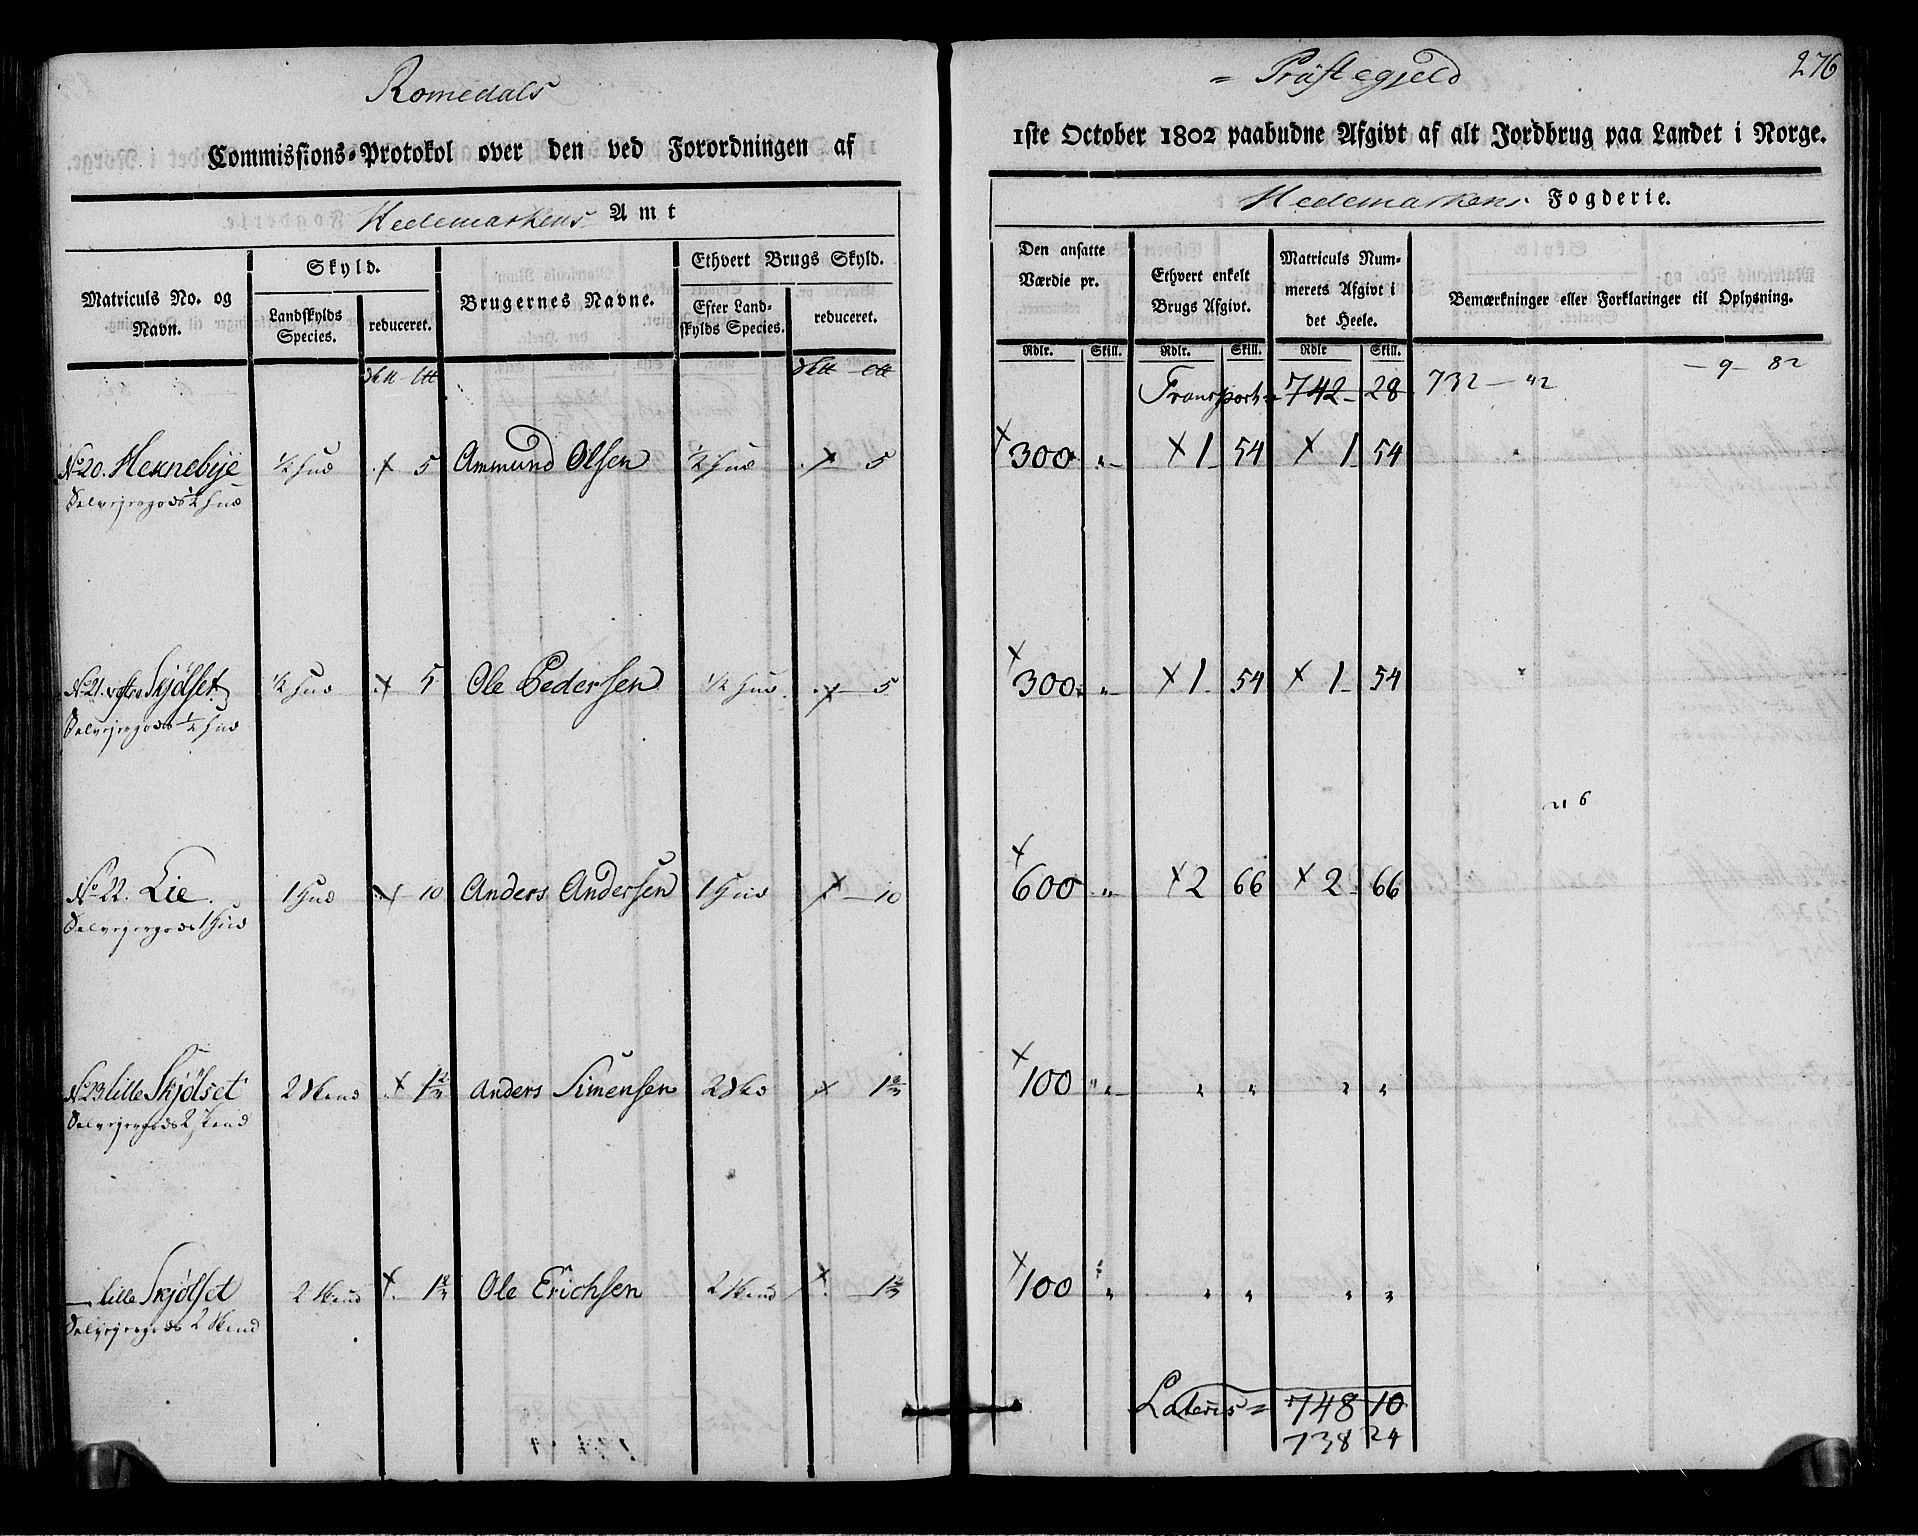 Romedals = Præstegjeld 276
Commissions-Protokol over den ved Forordningen af 1ste October 1802 paabudne Afgivt af alt Jordbrug paa Landet i Norge.
Hedemarkens Amt
Hedemarkens Fogderie.
Matriculs No. og Navn.
Skyld.
Landskylds Species.
reduceret.
Brugernes Navne.
Ethvert Brugs Skyld.
Efter Landskylds Species.
reduceret.
Den ansatte Værdie pr.
Ethvert enkelt Brugs Afgivt.
Matriculs Nummerets Afgivt i det Heele.
Bemærkninger eller Forklaringer til Oplysning.
Rdlr. Skill. Rdlr. Skill. Rdlr Skill.
Transport = 742 - 28 732 - 42 - 9 - 82
No 20. Hexnebye ½ Hud 5 Ammund Olsen ½ Hud 5 300 " 1 54 1 54
Selvejergods ½ Hud
No 21. vestre Skjølset ½ Hud 5 Ole Pedersen ½ Hud 5 300 " 1 54 1 54
Selvejergods ½ Hud
No 22. Lie 1 Hud 10 Anders Andersen 1 Hud 10 600 " 2 66 2 66
Selvejergods 1 Hud
No 23 lille Skjølset 2 Skind 1⅔ Anders Simensen 2 Skd 1⅔ 100 " " " " "
Selvejergods 2 Skind
— lille Skjølset 2 Skind 1⅔ Ole Erichsen 2 Skind 1⅔ 100 " " " " "
Selvejergods 2 Skind
Lateris = 748 10
738 24